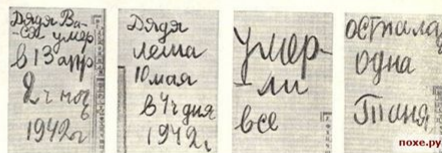 Дядя Ва-
-ся умер
в 13 апр
2 ч ноч
1942 г
Дядя
леша
10 мая
в 4 ч дня
1942 г
умер-
-ли
все
осталас
одна
Таня
похе.ру